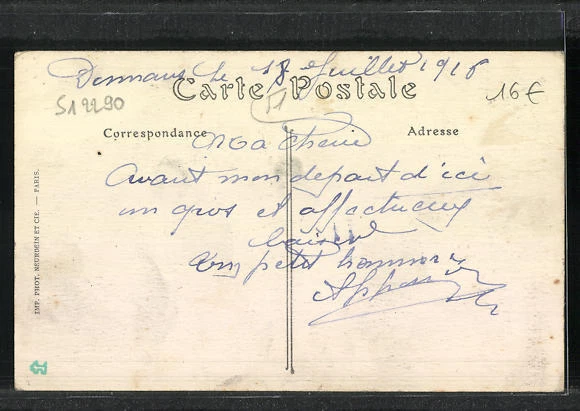 Dormans le 18 Juillet 1916
Carte Postale
16€
S12290
51
Correspondance
Adresse
Ma cherie
Avant mon depart d'ici
un gros et affectueux
baiser
Ton petit homme
IMP. PHOT. NEURDEIN ET CIE. — PARIS.